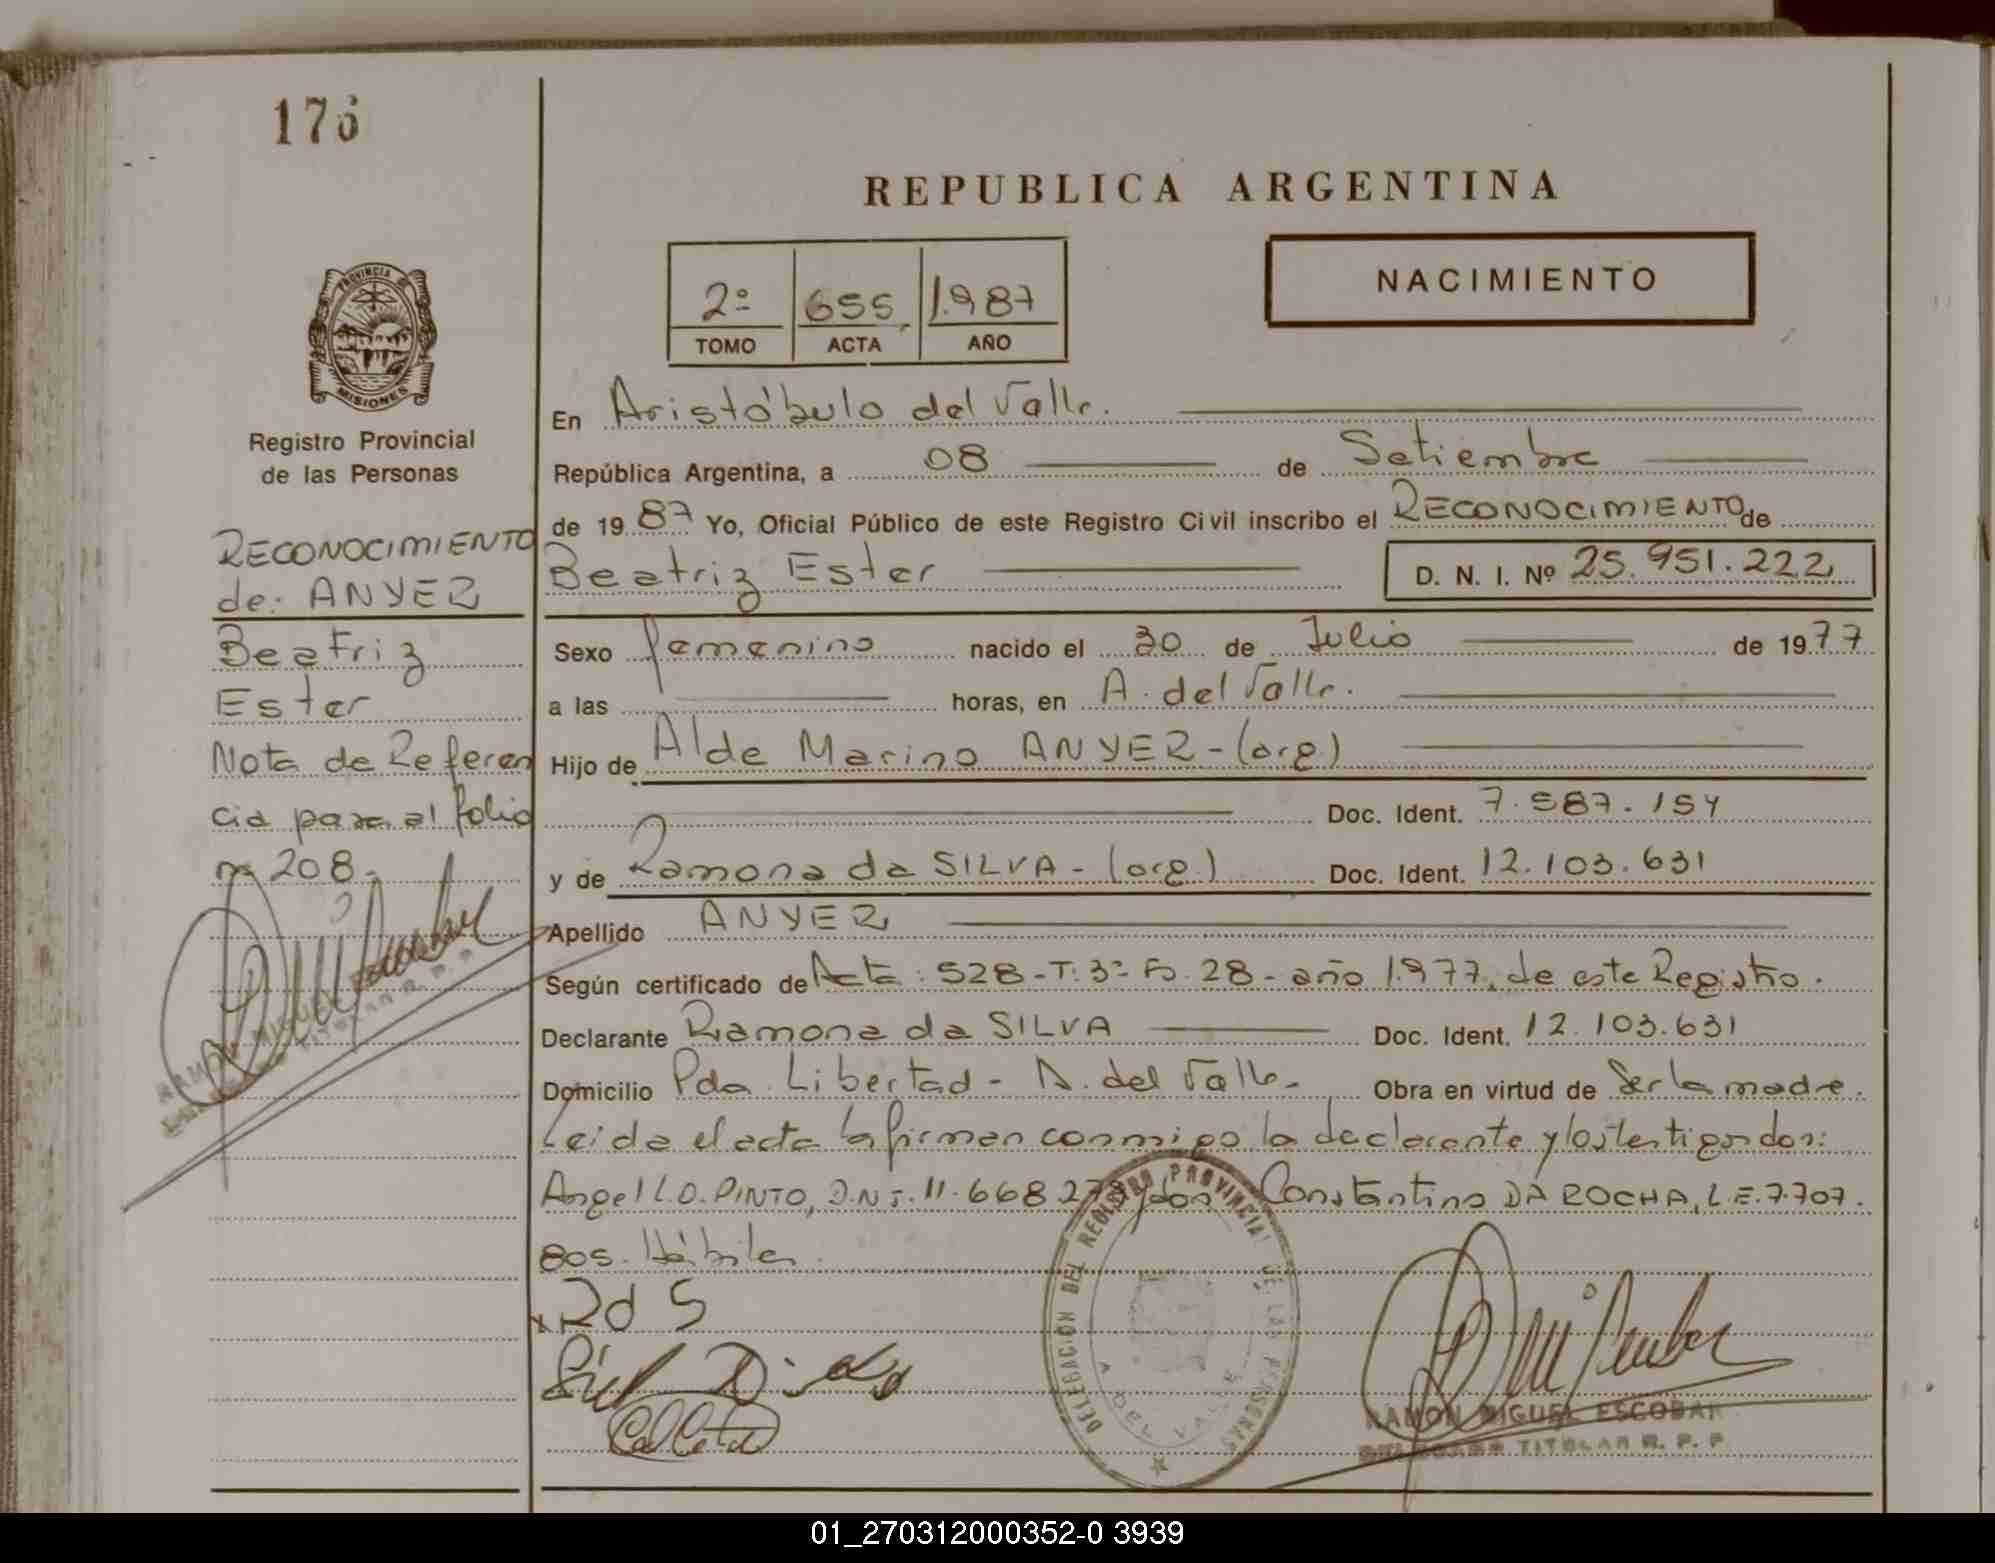 176
REPUBLICA ARGENTINA
NACIMIENTO
2º 655 1.987
TOMO ACTA AÑO
PROVINCIA DE
MISIONES
Registro Provincial
de las Personas
RECONOCIMIENTO
de: ANYER
Beatriz
Ester
Nota de Referen
cia para al folio
nº 208.
En Aristóbulo del Valle.
República Argentina, a 08 de Setiembre
de 1987 Yo, Oficial Público de este Registro Civil inscribo el RECONOCIMIENTO de
Beatriz Ester D. N. I. Nº 25.951.222
Sexo femenino nacido el 30 de Julio de 1977
a las horas, en A. del Valle.
Hijo de Alde Marino ANYER - (arg)
Doc. Ident. 7.587.154
y de Ramona da SILVA - (arg) Doc. Ident. 12.103.631
Apellido ANYER
Según certificado de Acta: 528 - T: 3º Fº 28 - año 1.977, de este Registro.
Declarante Ramona da SILVA Doc. Ident. 12.103.631
Domicilio Pda. Libertad - A. del Valle - Obra en virtud de Ser la madre.
Leida el acta la firman conmigo la declarante y los testigos don:
Angel L.O. PINTO, D.N.I. 11.668.278 y don Constantino DA ROCHA, L.E. 7.707.
805. Hábiles.
x Rd S
DELEGACIÓN DEL REGISTRO PROVINCIAL DE LAS PERSONAS
A. DEL VALLE
RAMON MIGUEL ESCOBAR
DELEGADO TITULAR R. P. P
RAMON MIGUEL ESCOBAR
TITULAR R. P. P
01_270312000352-0 3939